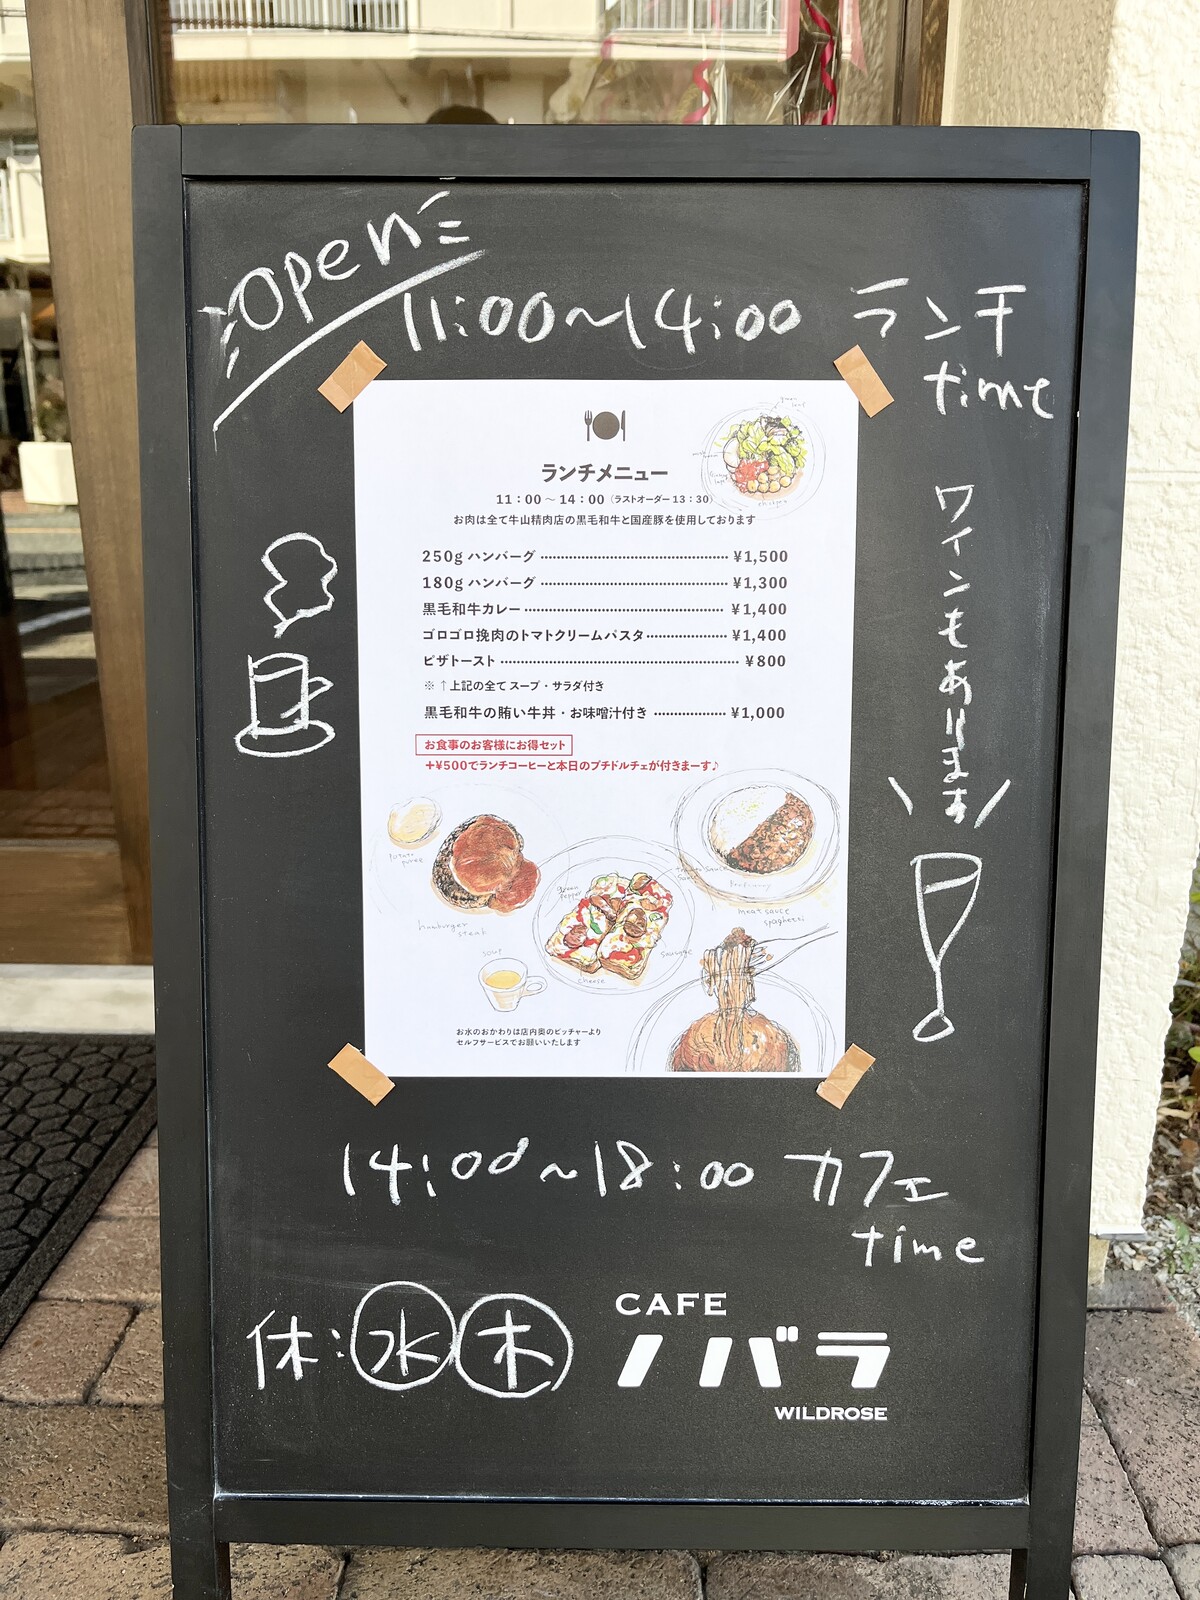 open
11:00〜14:00 ランチ
time
ランチメニュー
11：00 〜 14：00（ラストオーダー 13：30）
お肉は全て牛山精肉店の黒毛和牛と国産豚を使用しております
250g ハンバーグ ¥1,500
180g ハンバーグ ¥1,300
黒毛和牛カレー ¥1,400
ゴロゴロ挽肉のトマトクリームパスタ ¥1,400
ピザトースト ¥800
※ ↑上記の全て スープ・サラダ付き
黒毛和牛の賄い牛丼・お味噌汁付き ¥1,000
お食事のお客様にお得セット
+¥500でランチコーヒーと本日のプチドルチェが付きまーす♪
potato
puree
hamburger
steak
green
pepper
tomato sauce
meat sauce
spaghetti
soup
sausage
cheese
お水のおかわりは店内奥のピッチャーより
セルフサービスでお願いいたします
ワインもあります
14:00〜18:00 カフェ
time
休: 水 木
CAFE
ノバラ
WILDROSE